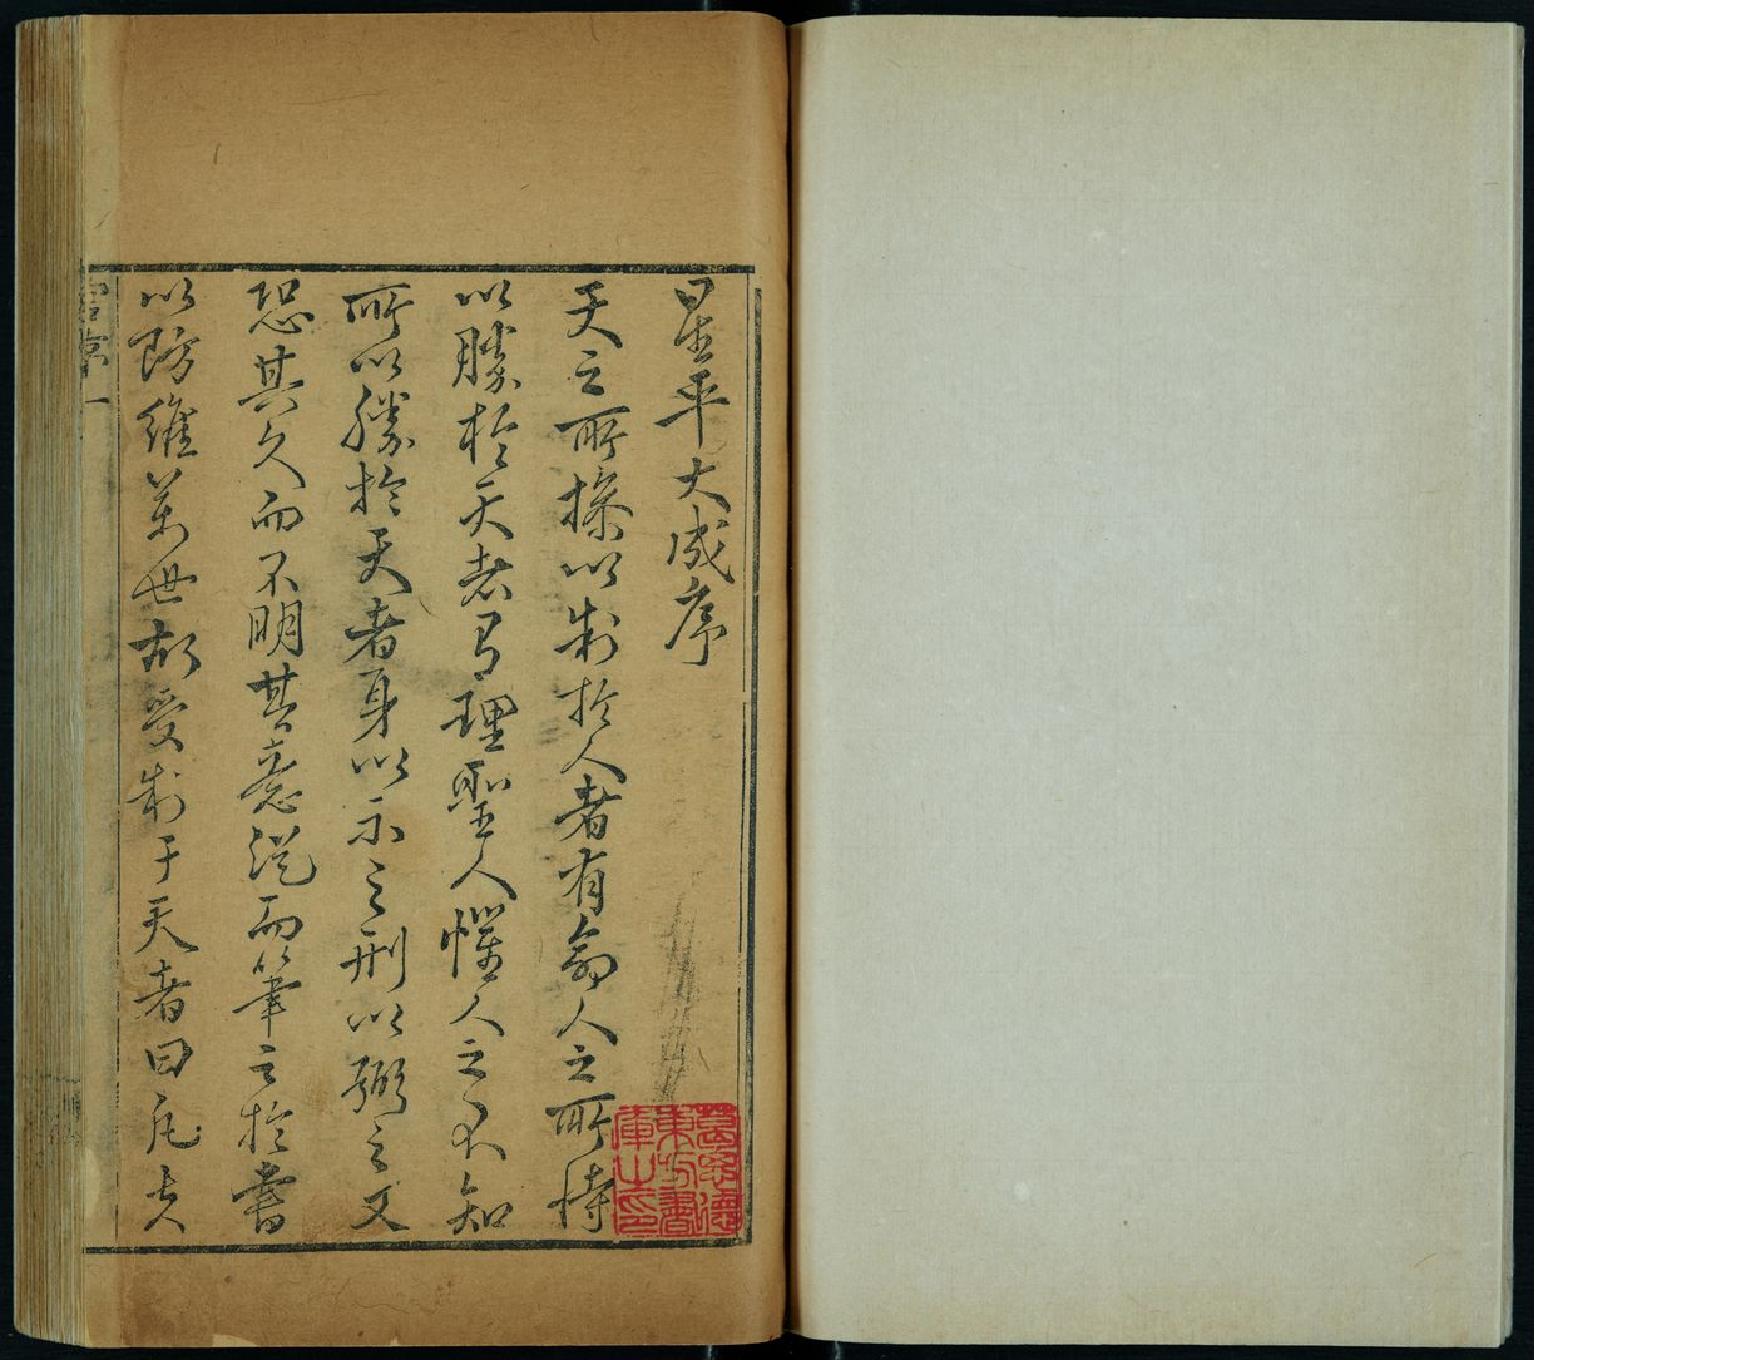 星平大成序
天之所操以制於人者有命人之所恃
以勝於天者有理聖人懼人之不知
所以勝於天者身以示之刑以弼之又
恐其久而不明其意從而筆之於書
以防維萬世故受制于天者曰凡夫
葛思德
東方書
庫之印